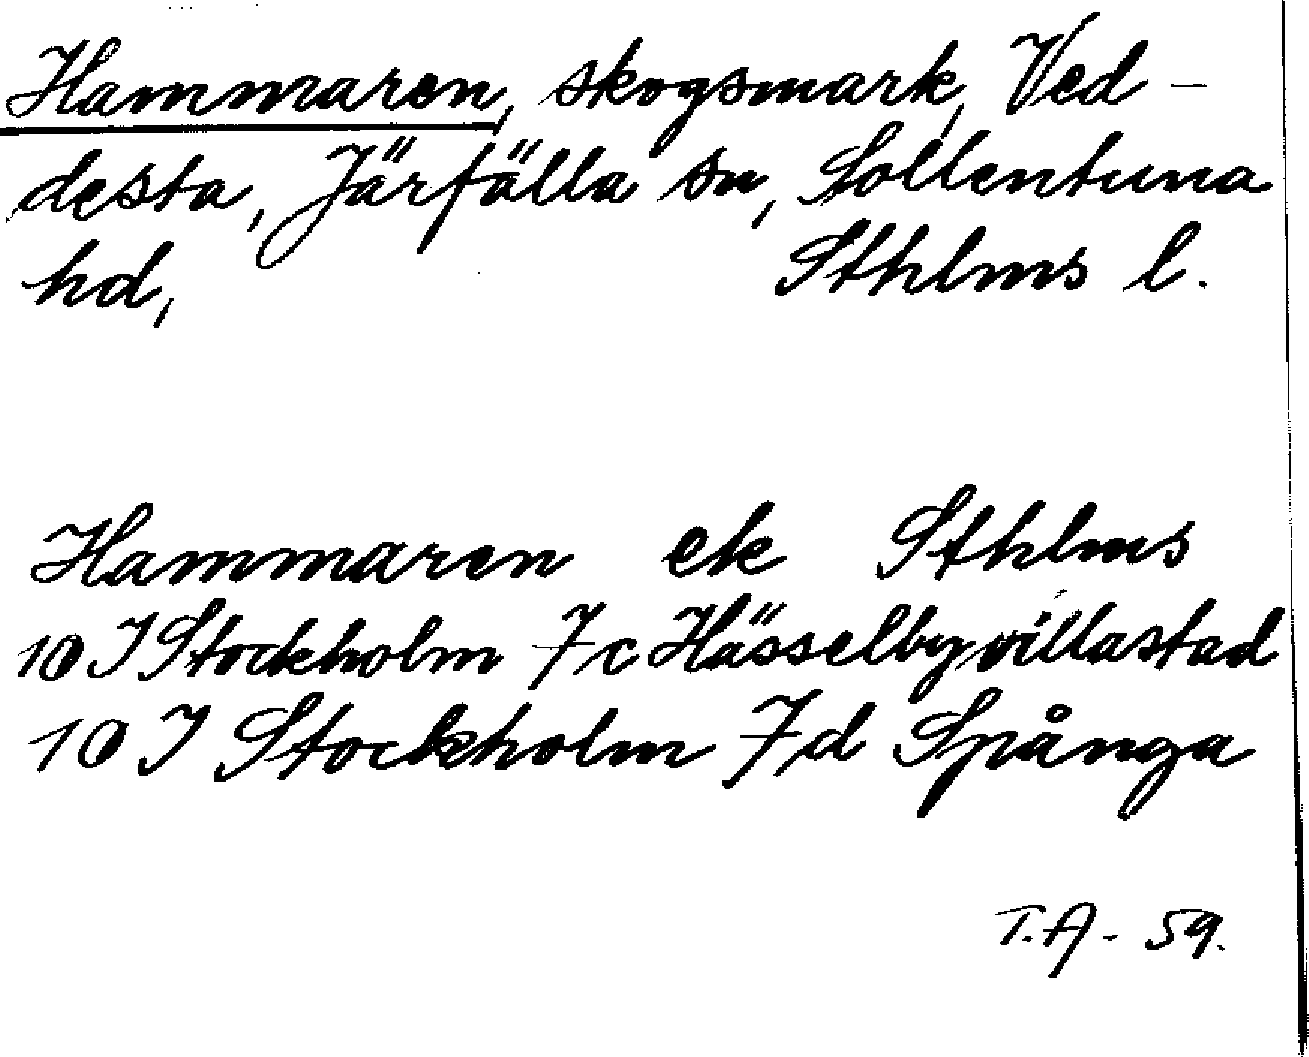 Hammaren, skogsmark, Ved-
desta, Järfälla sn, Sollentuna
hd, Sthlms l.
Hammaren ek Sthlms
10 I Stockholm 7c Hässelby villastad
10 I Stockholm 7d Spånga
T.A. - 59.